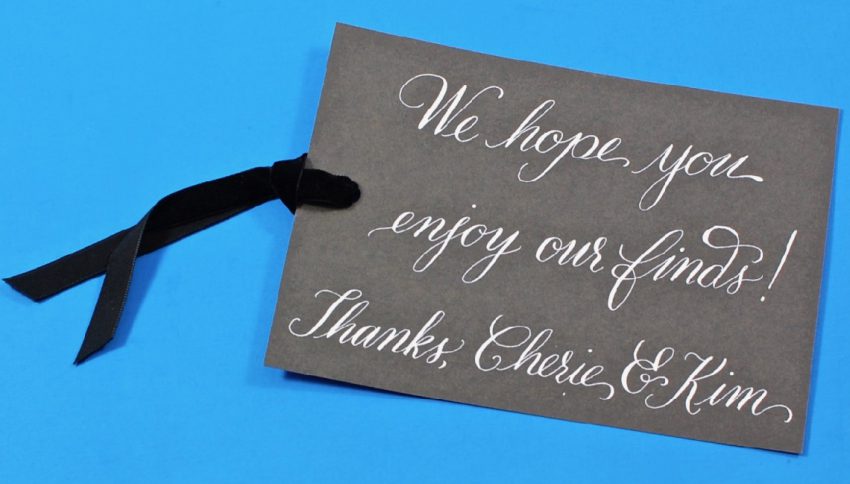 We hope you
enjoy our finds!
Thanks, Cherie & Kim